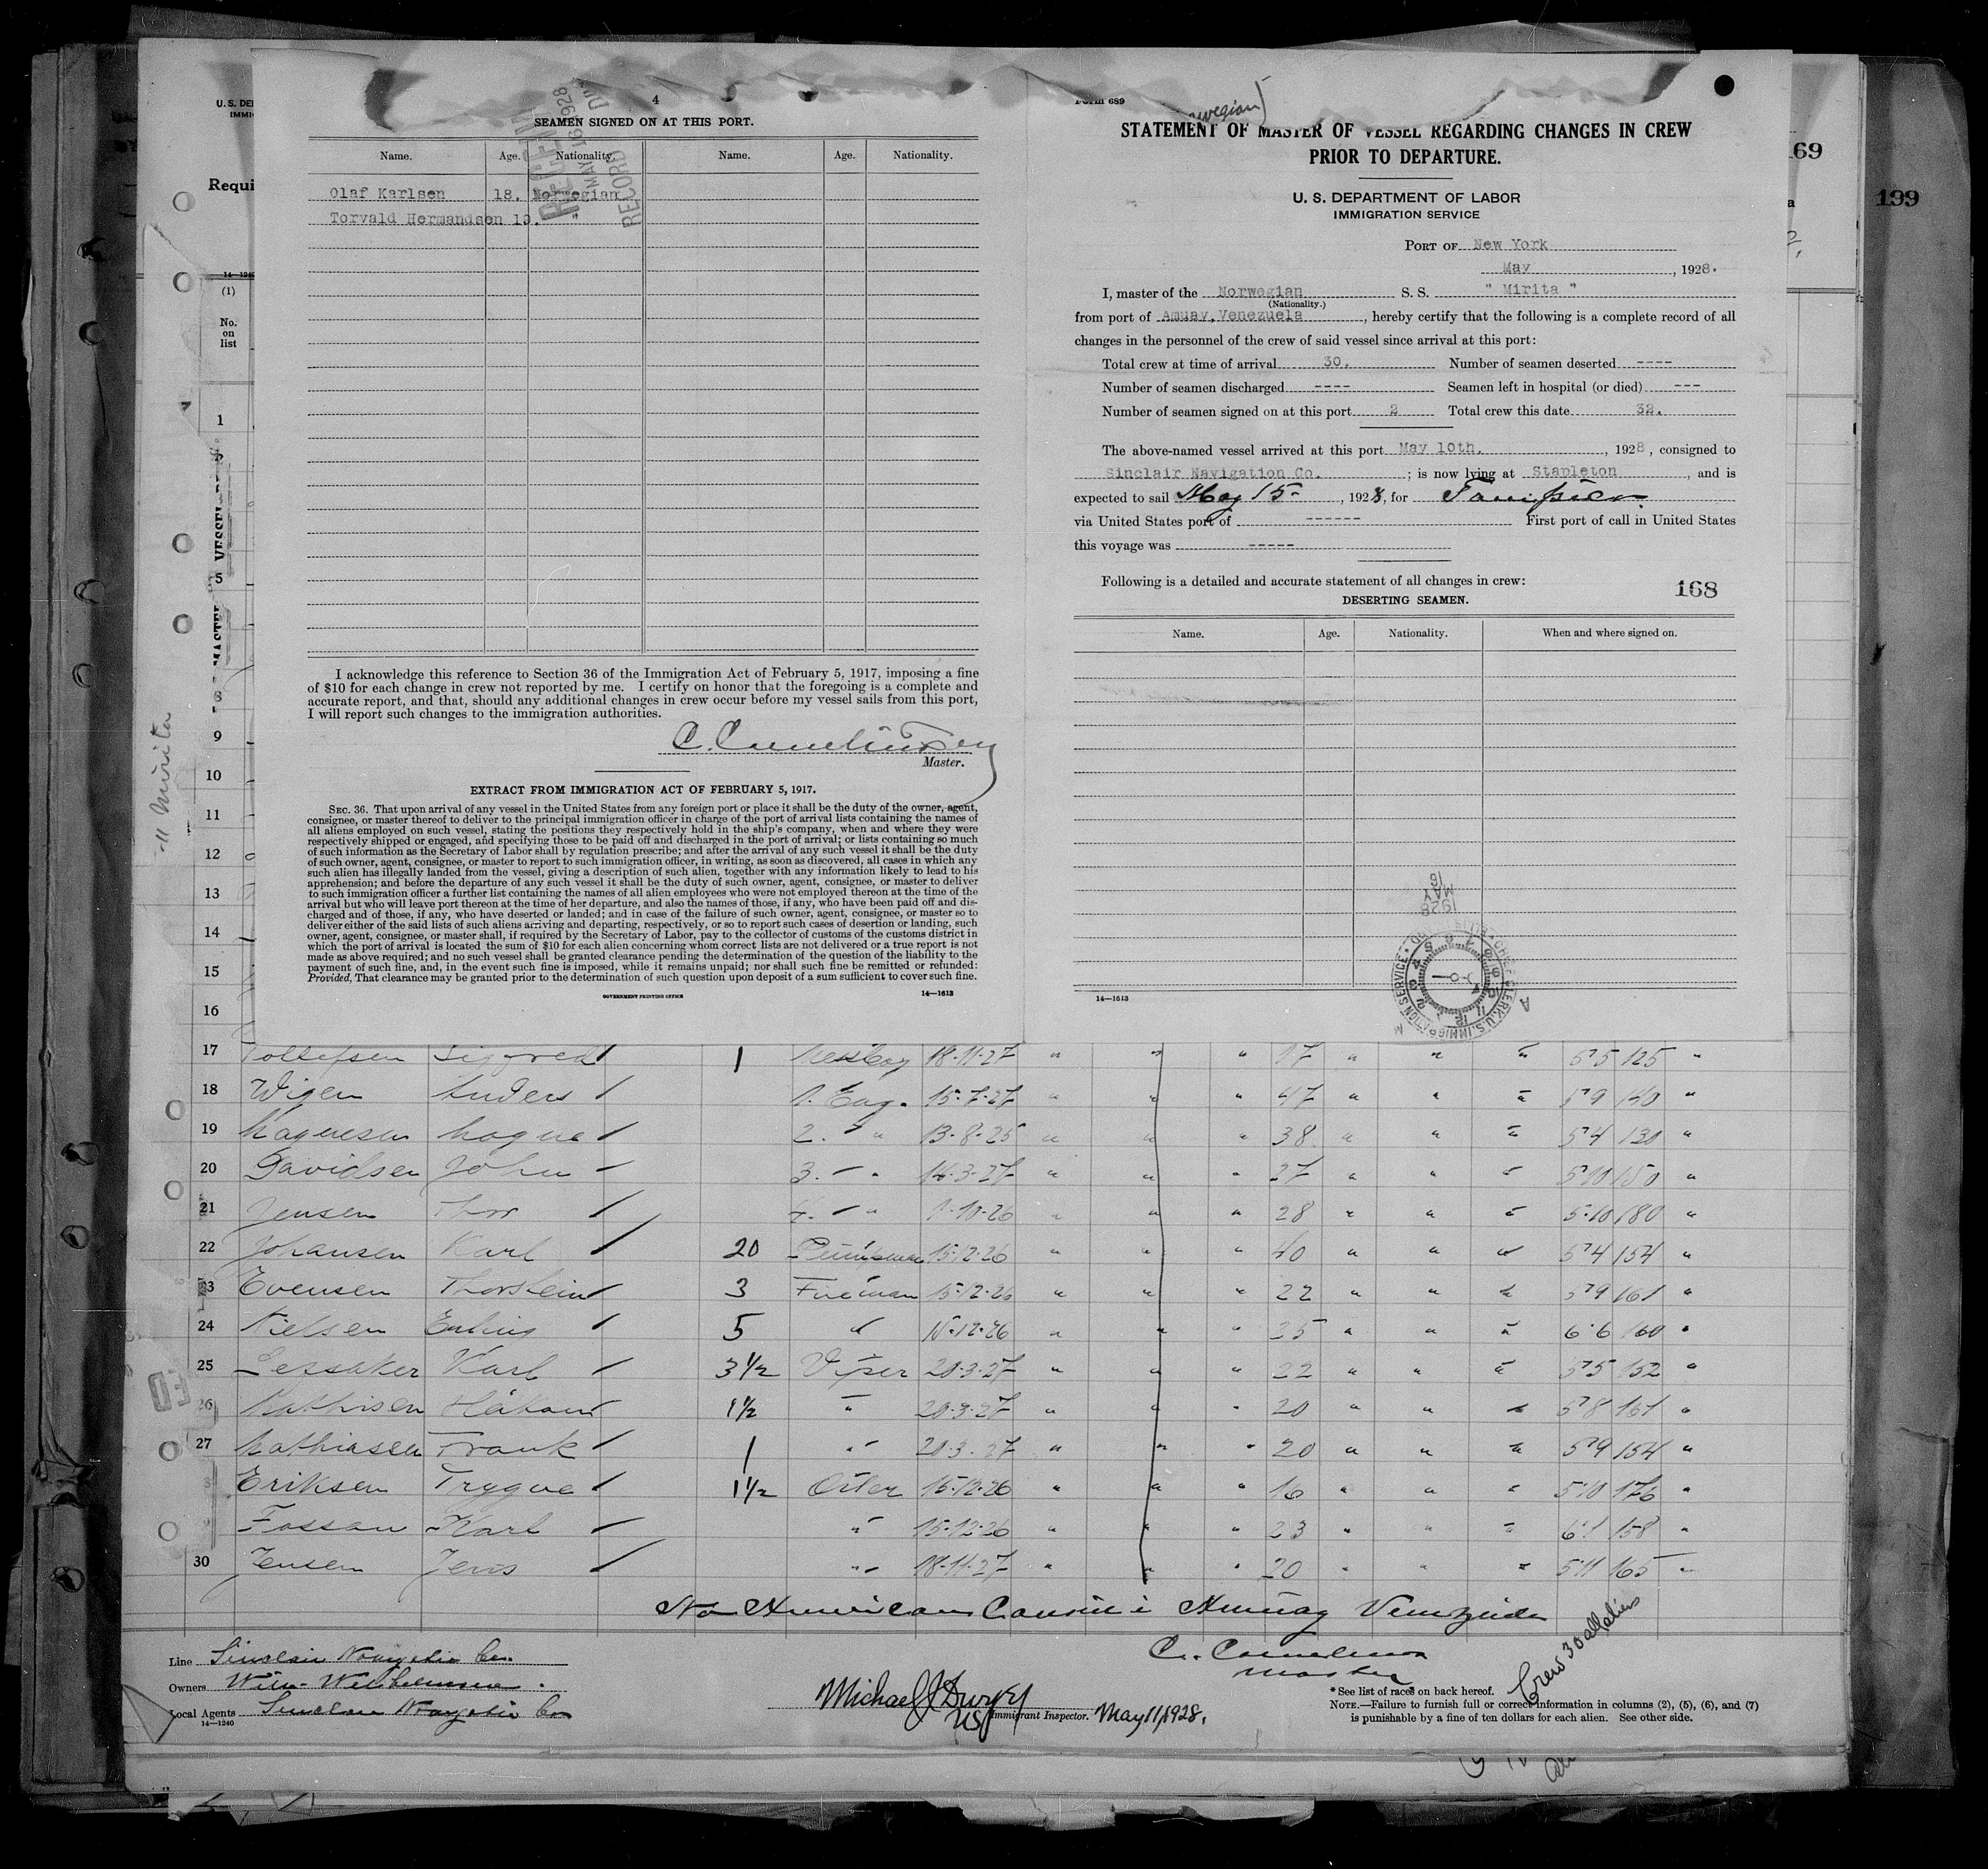 4
SEAMEN SIGNED ON AT THIS PORT.
Name. Age. Nationality. Name. Age. Nationality.
Olaf Karlsen 18. Norwegian
Torvald Hermandsen 19. "
I acknowledge this reference to Section 36 of the Immigration Act of February 5, 1917, imposing a fine
of $10 for each change in crew not reported by me. I certify on honor that the foregoing is a complete and
accurate report, and that, should any additional changes in crew occur before my vessel sails from this port,
I will report such changes to the immigration authorities.
Master.
EXTRACT FROM IMMIGRATION ACT OF FEBRUARY 5, 1917.
SEC. 36. That upon arrival of any vessel in the United States from any foreign port or place it shall be the duty of the owner, agent,
consignee, or master thereof to deliver to the principal immigration officer in charge of the port of arrival lists containing the names of
all aliens employed on such vessel, stating the positions they respectively hold in the ship's company, when and where they were
respectively shipped or engaged, and specifying those to be paid off and discharged in the port of arrival; or lists containing so much
of such information as the Secretary of Labor shall by regulation prescribe; and after the arrival of any such vessel it shall be the duty
of such owner, agent, consignee, or master to report to such immigration officer, in writing, as soon as discovered, all cases in which any
such alien has illegally landed from the vessel, giving a description of such alien, together with any information likely to lead to his
apprehension; and before the departure of any such vessel it shall be the duty of such owner, agent, consignee, or master to deliver
to such immigration officer a further list containing the names of all alien employees who were not employed thereon at the time of the
arrival but who will leave port thereon at the time of her departure, and also the names of those, if any, who have been paid off and dis-
charged and of those, if any, who have deserted or landed; and in case of the failure of such owner, agent, consignee, or master so to
deliver either of the said lists of such aliens arriving and departing, respectively, or so to report such cases of desertion or landing, such
owner, agent, consignee, or master shall, if required by the Secretary of Labor, pay to the collector of customs of the customs district in
which the port of arrival is located the sum of $10 for each alien concerning whom correct lists are not delivered or a true report is not
made as above required; and no such vessel shall be granted clearance pending the determination of the question of the liability to the
payment of such fine, and, in the event such fine is imposed, while it remains unpaid; nor shall such fine be remitted or refunded:
Provided, That clearance may be granted prior to the determination of such question upon deposit of a sum sufficient to cover such fine.
GOVERNMENT PRINTING OFFICE 14—1613
Form 689
STATEMENT OF MASTER OF VESSEL REGARDING CHANGES IN CREW
PRIOR TO DEPARTURE.
U. S. DEPARTMENT OF LABOR
IMMIGRATION SERVICE
PORT OF New York
May , 1928.
I, master of the Norwegian S. S. " Mirita "
(Nationality.)
from port of Amuay,Venezuela , hereby certify that the following is a complete record of all
changes in the personnel of the crew of said vessel since arrival at this port:
Total crew at time of arrival 30. Number of seamen deserted ----
Number of seamen discharged ---- Seamen left in hospital (or died) ---
Number of seamen signed on at this port 2 Total crew this date 32.
The above-named vessel arrived at this port May 10th. , 1928, consigned to
Sinclair Navigation Co. ; is now lying at Stapleton , and is
expected to sail May 15 , 1928, for Tampico
via United States port of ------ First port of call in United States
this voyage was -----
Following is a detailed and accurate statement of all changes in crew:
168
DESERTING SEAMEN.
Name. Age. Nationality. When and where signed on.
14—1613
MAY 16 1928
169
199
U. S. DE
Requi
14—1240
(1)
No.
on
list
1
5
9
10
11
12
13
14
15
16
17 1 18-11-27 " " " 17 " " " 5'5 125 "
18 Wigen Anders 1. Eng. 15-7-27 " " " 47 " " " 5'9 "
19 Magnesen 2. " 13-8-25 " " " 38 " " " 5'4 130 "
20 Davidsen John 3. " 14-3-27 " " " 27 " " " 5'10 150 "
21 Jensen Thor 4. " 1-10-26 " " " 28 " " " 5'10 180 "
22 Johansen Karl 20 15-12-26 " " " 40 " " " 5'4 154 "
23 Evensen Thorstein 3 Fireman 15-12-26 " " " 22 " " " 5'9 161 "
24 Nielsen Erling 5 " 15-12-26 " " " 25 " " " 6'6 160 "
25 Karl 3½ Viper 20-3-27 " " " 22 " " " 5'5 152 "
26 Mathisen Håkon 1½ " 20-3-27 " " " 20 " " " 5'8 "
27 Mathiasen Frank 1 " 20-3-27 " " " 20 " " " 5'9 154 "
Eriksen Trygve 1½ Oiler 15-12-26 " " " 16 " " " 5'10 176 "
Karl " 15-12-26 " " " 23 " " " 6'1 158 "
30 Jensen Jens " 18-11-27 " " " 20 " " " 5'11 165 "
No American Consul i Amuay Venezuela
C. Cornelius
Master
Crew 30 all aliens
Line Sinclair Navigatio Co.
Owners Wilh. Wilhelmsen
Local Agents Sinclair Navigatio Co
14—1240
Michael J Durky
US Immigrant Inspector. May 11/1928.
*See list of races on back hereof.
NOTE.—Failure to furnish full or correct information in columns (2), (5), (6), and (7)
is punishable by a fine of ten dollars for each alien. See other side.